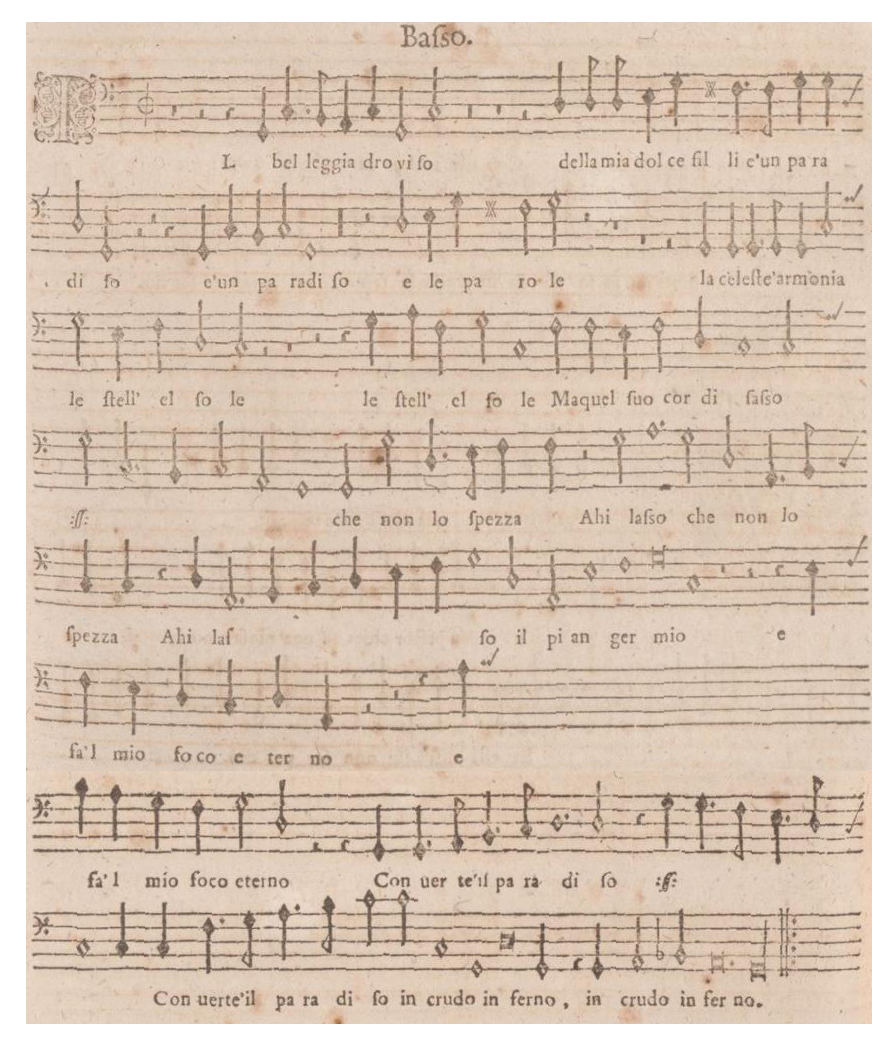 Baſſo.
IL bel leggia dro vi ſo della mia dol ce fil li e'un pa ra
di ſo e'un pa radi ſo e le pa ro le la celeſte'armonia
le ſtell' el ſo le le ſtell' el ſo le Maquel ſuo cor di ſaſſo
:ſſ: che non lo ſpezza Ahi laſſo che non lo
ſpezza Ahi laſ ſo il pi an ger mio e
fa'l mio fo co e ter no e
fa'l mio foco eterno Con uer te'il pa ra di ſo :ſſ:
Con uerte'il pa ra di ſo in crudo in ferno, in crudo in fer no.